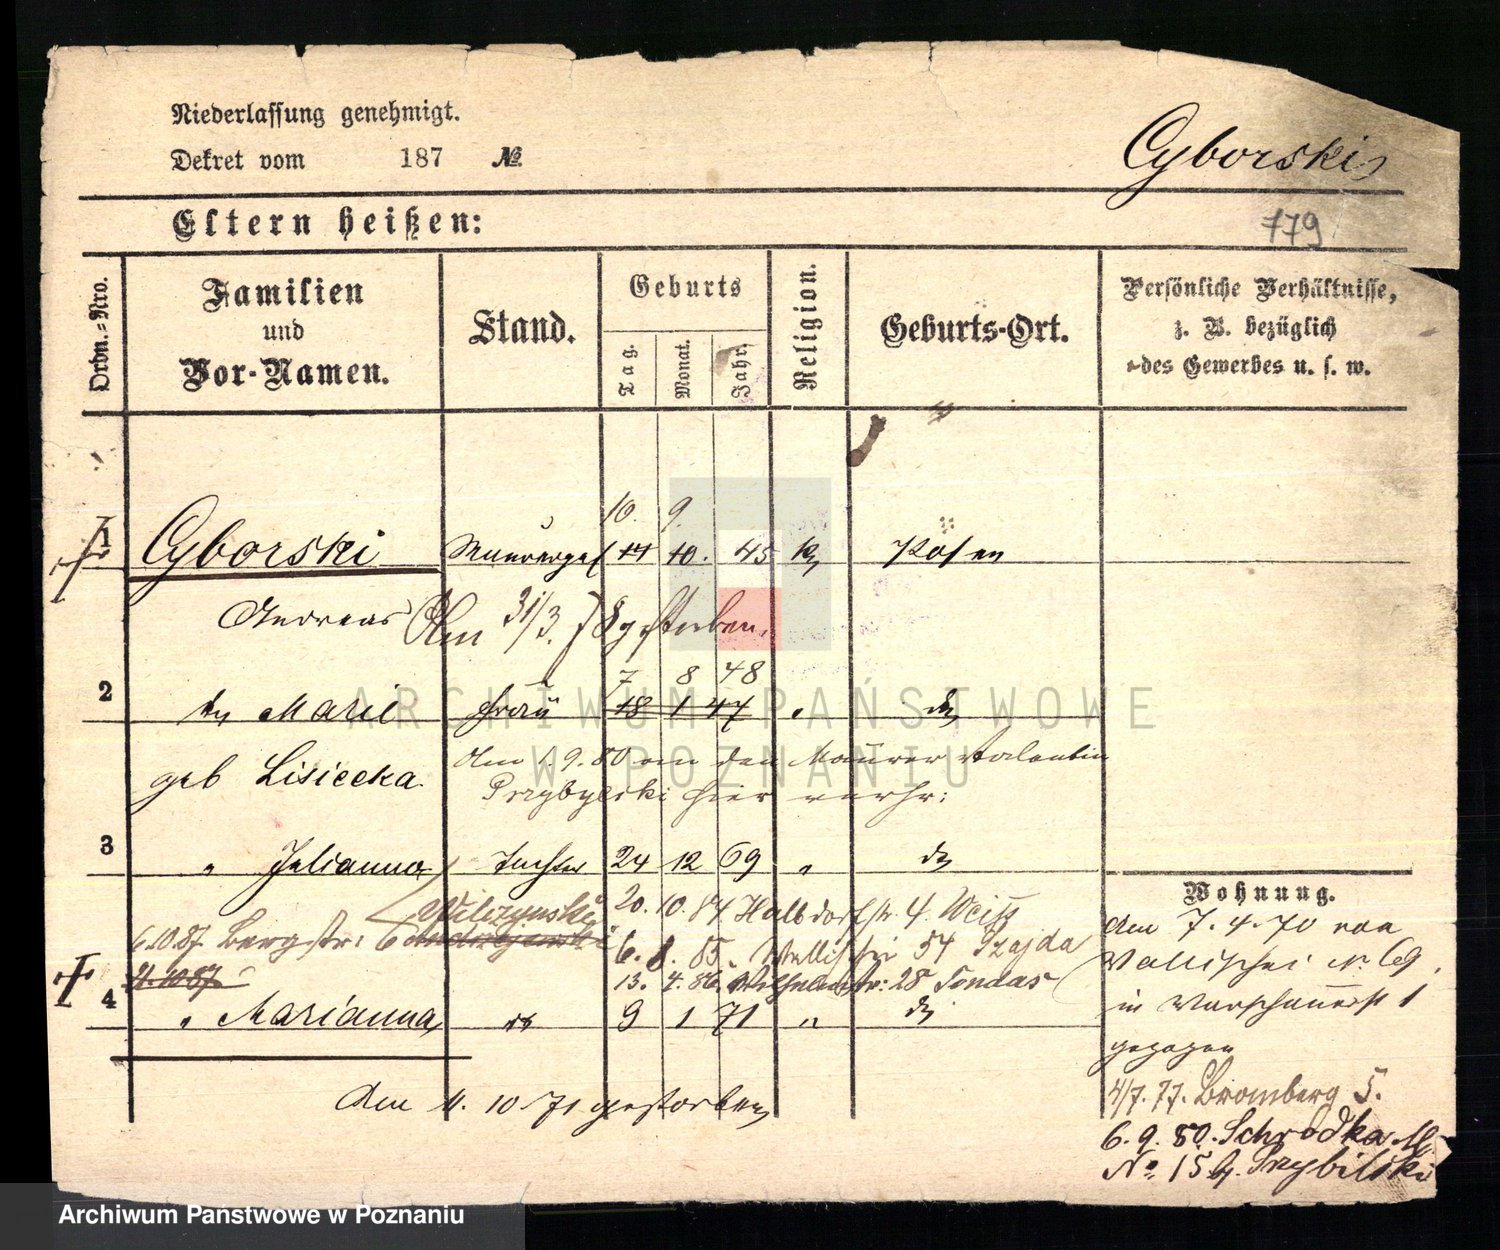 Niederlassung genehmigt.
Dekret vom 187 №
Cyborski
779
Eltern heißen:
Ordn.=Nro.
Familien und Vor-Namen.
Stand.
Geburts
Tag.
Monat.
Jahr.
Religion.
Geburts-Ort.
Persönliche Verhältnisse, z. B. bezüglich des Gewerbes u. s. w.
10. 9.
1 Cyborski Maurerges 11 10. 45 k Posen
Andreas Am 31/3. gestorben.
7 8 48
2 Marie Frau 18 1 47 " do
geb Lisiecka
Am 1.9.80 an den Maurer Valentin
Przybylski hier verh:
3 " Julianna Tochter 24 12 69 " do
Wilczynski 20. 10. 84 Halbdorfstr. 4. Weiß
6.10.87. Bergstr: 6 Andrzejewski
6. 8. 85. Wallischei 54 Szajda
11.10.87
13. 4. 86. Wilhelmstr: 28 Tondas
4 " Marianna do 9 1 71 " do
Am 11. 10 71 gestorben
Wohnung.
Am 7.4.70 von
Wallischei Nr. 69
in Warschauerst 1
gezogen
4/7. 77. Bromberg 5.
6.9.80. Schrodka M
No. 15 b. Przybilski
ARCHIWUM PAŃSTWOWE
W POZNANIU
Archiwum Państwowe w Poznaniu